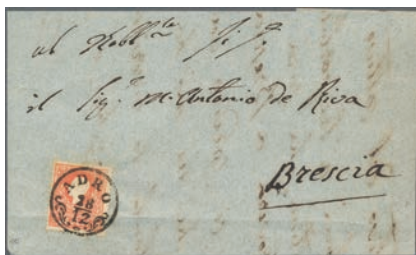 al Nobl
il Sig.r M. Antonio de Riva
Brescia
ADRO
12